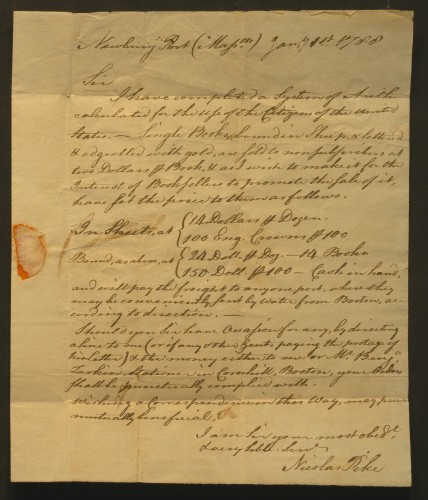 Newbury Port (Masstts) Jany 1st 1788
Sir
I have completed a System of Arith
calculated for the use of the Citizens of the United
States. — Single Books, bound in Sheep, & lett
& edgrolled with gold, are sold to nonsubscribers at
two Dollars ⅌ Book, & as I wish to make it for the
Interest of Booksellers to promote the sale of it,
have set the price to them as follows.
In Sheets, at { 14 Dollars ⅌ Dozen
100 Eng. Crowns ⅌ 100
Bound, as above, at { 24 Doll. ⅌ Doz. — 14 Books
150 Doll. ⅌ 100 — Cash in hand,
and will pay the freight to any one port, where they
may be conveniently sent by Water from Boston, ac-
cording to direction. —
Should you Sir have Occasion for any, by directing
a line to me (or if any other Gents, paying the postage of
the letter) & the money either to me or Mr Benja
Larkin, Stationer in Cornhill, Boston, your Orders
shall be punctually complied with.
Wishing a Correspondence in this Way, may prove
mutually beneficial,
I am Sir your most obedt
& very hble Servt
Nicolas Pike